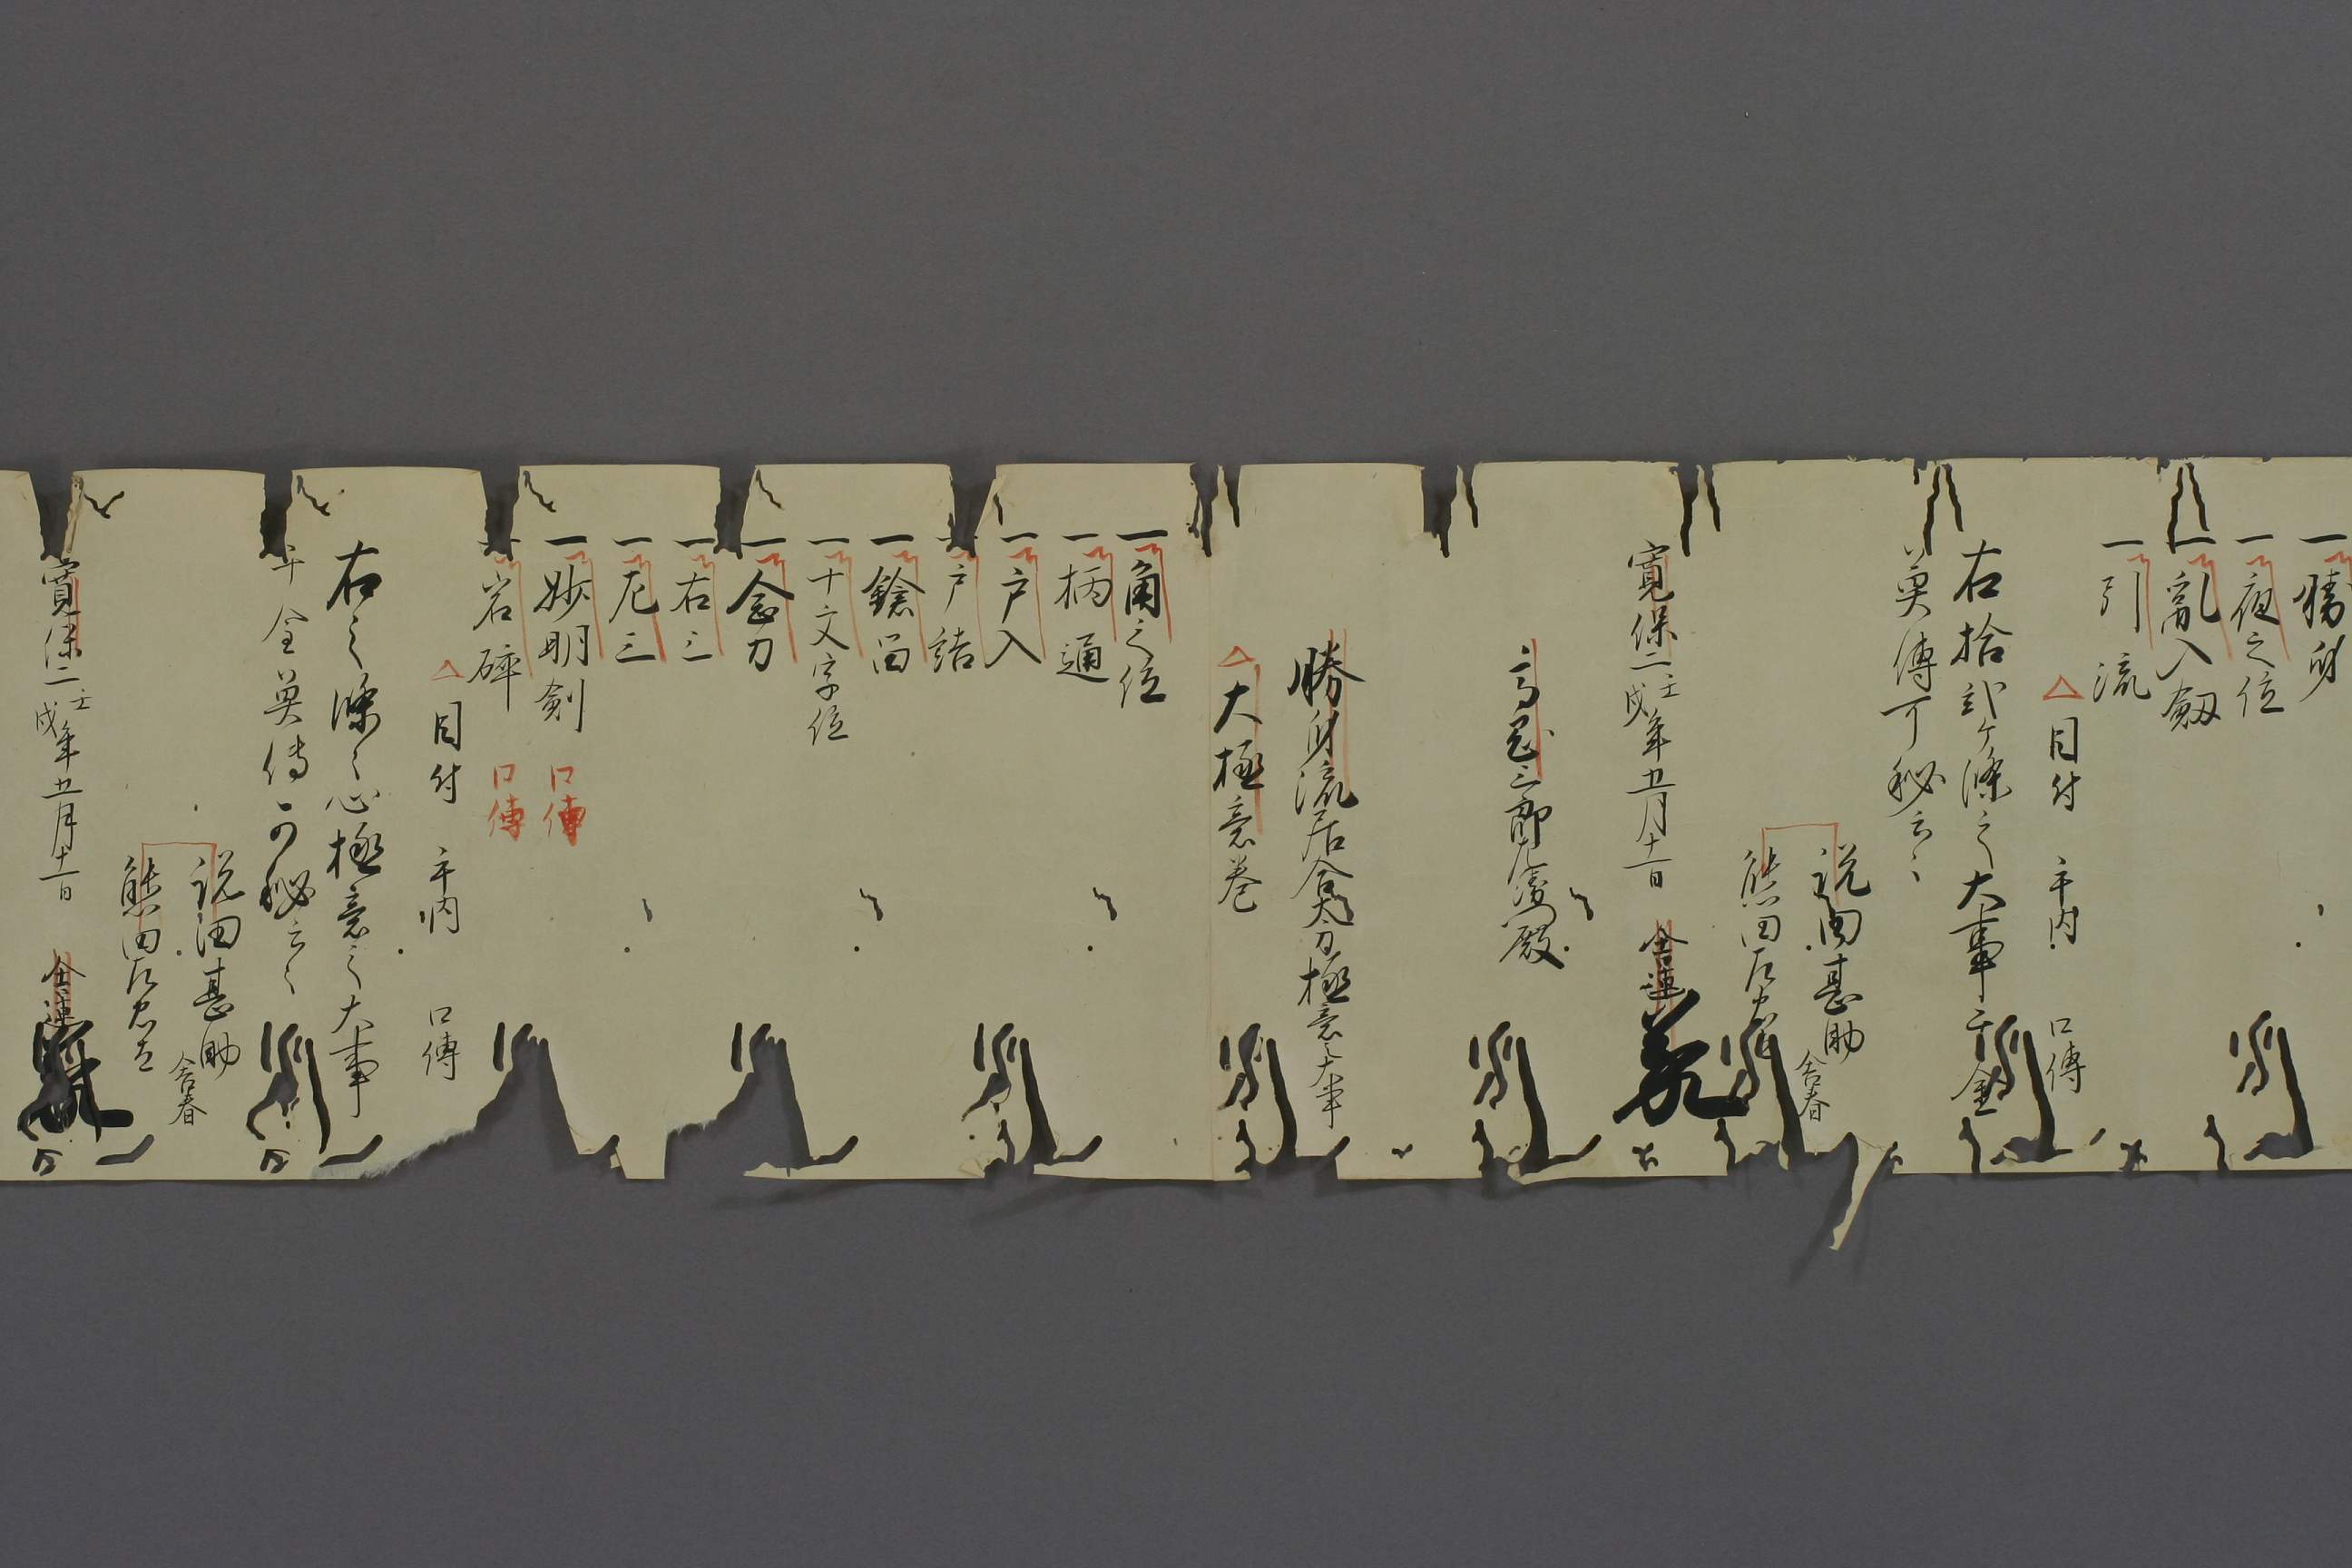 一勝身
一夜之位
一亂入劔
一引流
△目付 手内 口傳
右拾弐ケ條之大事千金
莫傳可秘云々
説田甚助
舍春
熊田
寛保二壬戌年五月十一日
三郎左衛門殿
勝身流居合太刀極意之大事
△大極意巻
一角之位
一柄通
一戸入
一戸詰
一鎗留
一十文字位
一念力
一右三
一左三
一妙明剣 口傳
一岩碎 口傳
△目付 手内 口傳
右之條々心極意之大事
千金莫傳可秘云々
説田甚助
舍春
熊田
寛保二壬戌年五月十一日